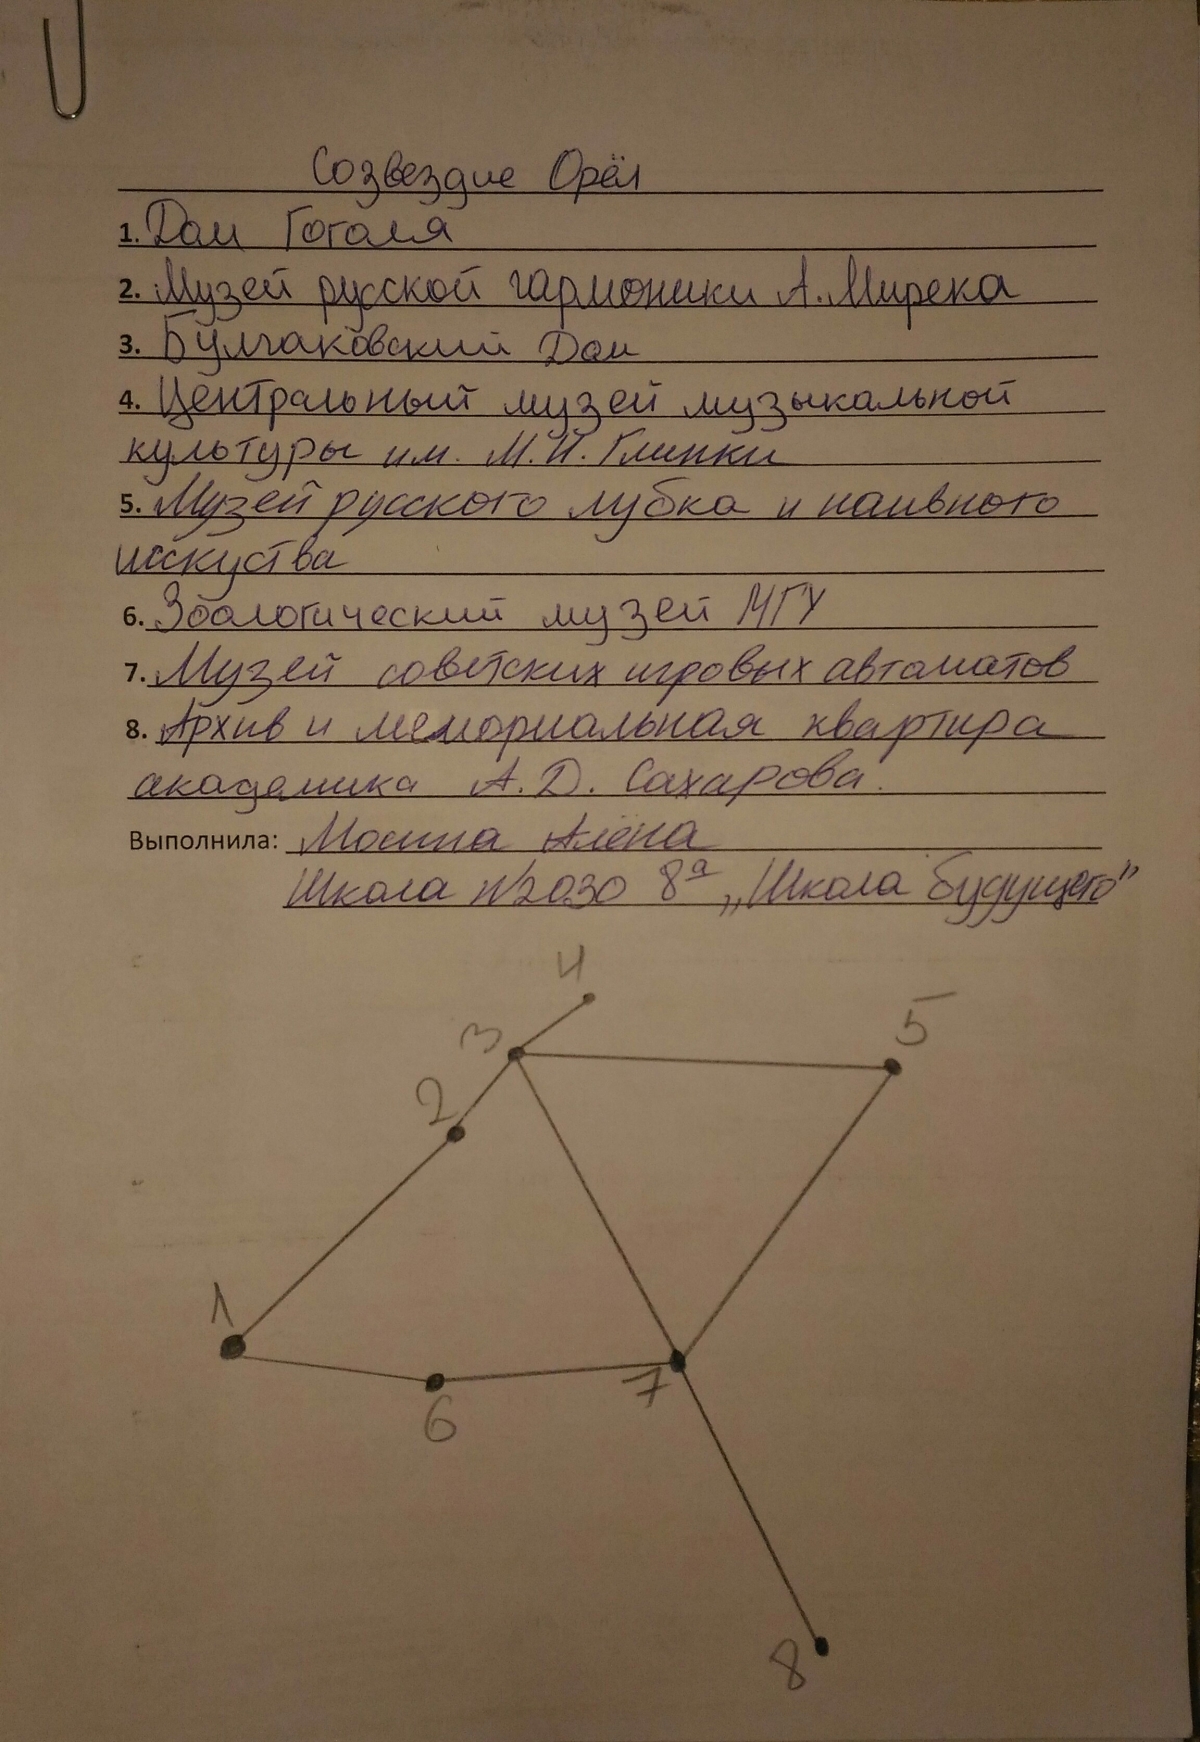 Созвездие Орёл
1. Дом Гоголя
2. Музей русской гармоники А. Мирека
3. Булгаковский Дом
4. Центральный музей музыкальной
культуры им. М.И. Глинки
5. Музей русского лубка и наивного
искуства
6. Зоологический музей МГУ
7. Музей советских игровых автоматов
8. Архив и мемориальная квартира
академика А.Д. Сахарова.
Выполнила: Мосина Алёна
Школа №2030 8а „Школа будущего"
4
5
3
2
1
7
6
8